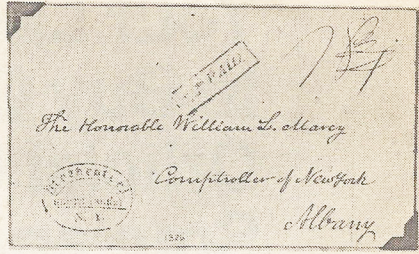 PAID
The Honorable William L. Marcy
Comptroller of New York
Rochester
N.Y.
Albany